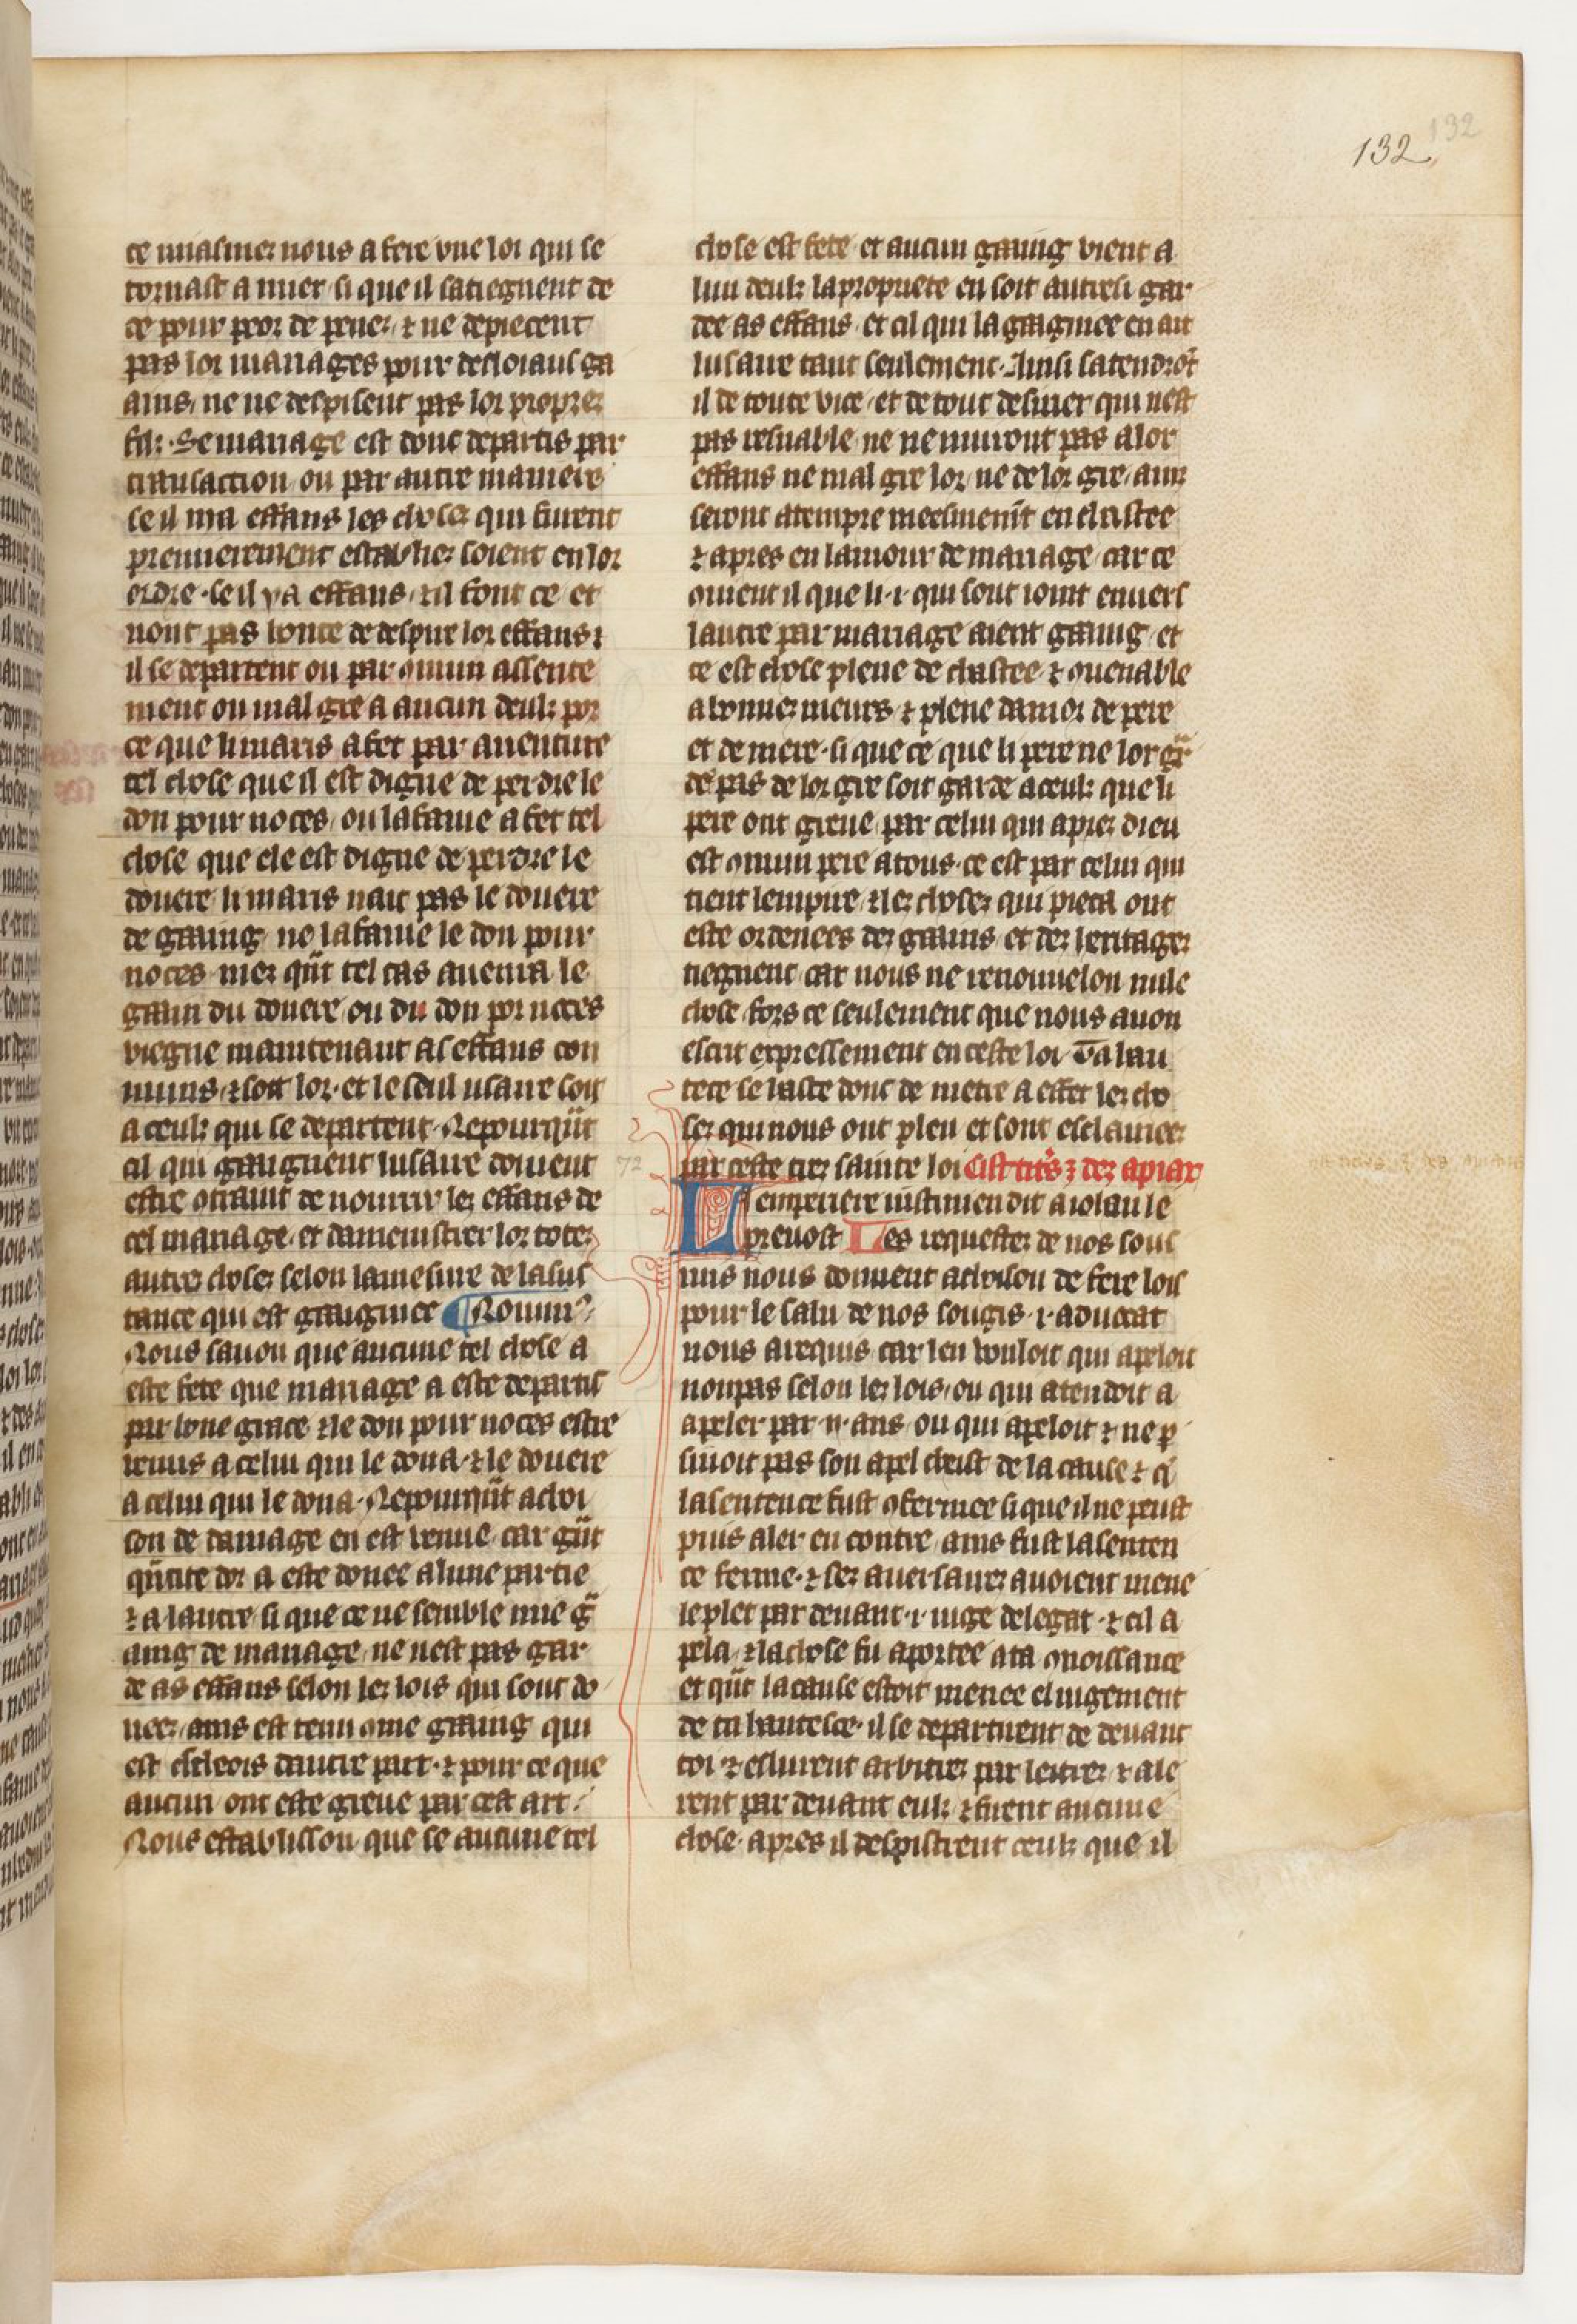 132
132
ce missmes nous a fere vne loi qui se
tornast a nuer si que il satiegnent de
ce pour peor de peinez, ⁊ ne depiecent
pas lor mariages pour desloiaus ga
ains, ne ne despisent pas lor proprez
filz. Se mariage est donc departis par
transaction, ou par autre maniere
se il ni a effans les chosez qui furent
premierement establiez soient en lor
ordre. se il y a effans, ⁊ il font ce et
nont pas honte de despire lor effans ⁊
il se departent ou par ꝯmun assente
ment ou mal gre a aucun deulz por
ce que li maris a fet par auenture
tel chose que il est digne de perdre le
don pour noces, ou la fame a fet tel
chose que ele est digne de perdre le
douere, li maris nait pas le douere
de gaaing, ne la fame le don pour
noces mez qñt tel cas auenra le
gaain du douere, ou du don por noces
viegne maintenant as effans con
muns, ⁊ soit lor. et le seul usaire soit
a ceulz qui se departent. Nepourqñt
cil qui gaaignent lusaire doiuent
estre ꝯtraint de nourrir les effans de
cel mariage. et damenistrer lor totez
autrez chosez selon la mesure de la sus
tance qui est gaaigniee ¶ Nouuiꝰ
Nous sauon que aucune tel chose a
este fete que mariage a este departis
par bone grace ⁊ le don pour noces estre
renus a celui qui le dona. ⁊ le douere
a celui qui le dona. Nepourqñt achoi
son de damage en est venue, car gñt
qñtite dor a este donee a lune partie
⁊ a lautre, si que ce ne semble mie g̃
aaing de mariage, ne nest pas gar
de as effans selon lez lois qui sont do
neez, ains est tenu ꝯme gaaing qui
est dautre part. ⁊ pour ce que
aucun ont este greue par cest art.
Nous establisson que se aucune tel
chose est fete et aucun gaaing vient a
lun deulz la propriete en soit autresi gar
dee as effans, et cil qui la gaagniee en ait
lusaire tant seulement. Ainsi satendrot̃
il de toute vice, et de tout desirrer qui nest
pas resnable, ne ne nuiront pas a lor
effans ne mal gre lor, ne de lor gre, ainz
seront atempre meesmem̃t en chastee
⁊ apres en lamour de mariage, car ce
ꝯuient il que li .i. qui sont ioint enuers
lautre par mariage aient gaaing, et
ce est chose pleine de chastee ⁊ ꝯuenable
a bonnez meurs ⁊ pleine damor de pere
et de mere. si que ce que li pere ne lor gar̃
de pas de lor gre soit garde a ceulz que li
pere ont greue par celui qui aprez dieu
est ꝯmun pere a tous. ce est par celui qui
tient lempire, ⁊ lez chosez qui pieca ont
este ordenees dez gaains et dez heritagez
tiegnent, car nous ne renouuelon nule
chose fors ce seulement que nous auon
escrit expressement en ceste loi. Ta hau
tece se haste donc de metre a effet lez cho
sez qui nous ont pleu et sont esclairiez
72 par ceste trez sainte loi Cist titˢ ⁊ dez apiax
Lempeere iustinien dit a iohan le
preuost Les requestez de nos sous
mis nous donnent achoison de fere lois
pour le salu de nos sougis. i. aduocat
nous a requis car len vouloit qui apeloit
nonpas selon lez lois, ou qui atendoit a
apeler par .ii. ans, ou qui apeloit ⁊ ne p
siuoit pas son apel cheist de la cause ⁊ q̃
la sentence fust ꝯfermee si que il ne peust
puis aler en contre, ains fust la senten
ce ferme. ⁊ sez auersairez auoient mene
le plet par deuant .i. iuge delegat. ⁊ cil a
pela, ⁊ la chose fu aportee a ta ꝯnoissance
et qñt la cause estoit menee el iugement
de ta hautesce. il se departirent de deuant
toi ⁊ eslurent arbitrez par lettrez ⁊ ale
rent par deuant eulz ⁊ firent aucune
chose. apres il despistrent ceulz que il